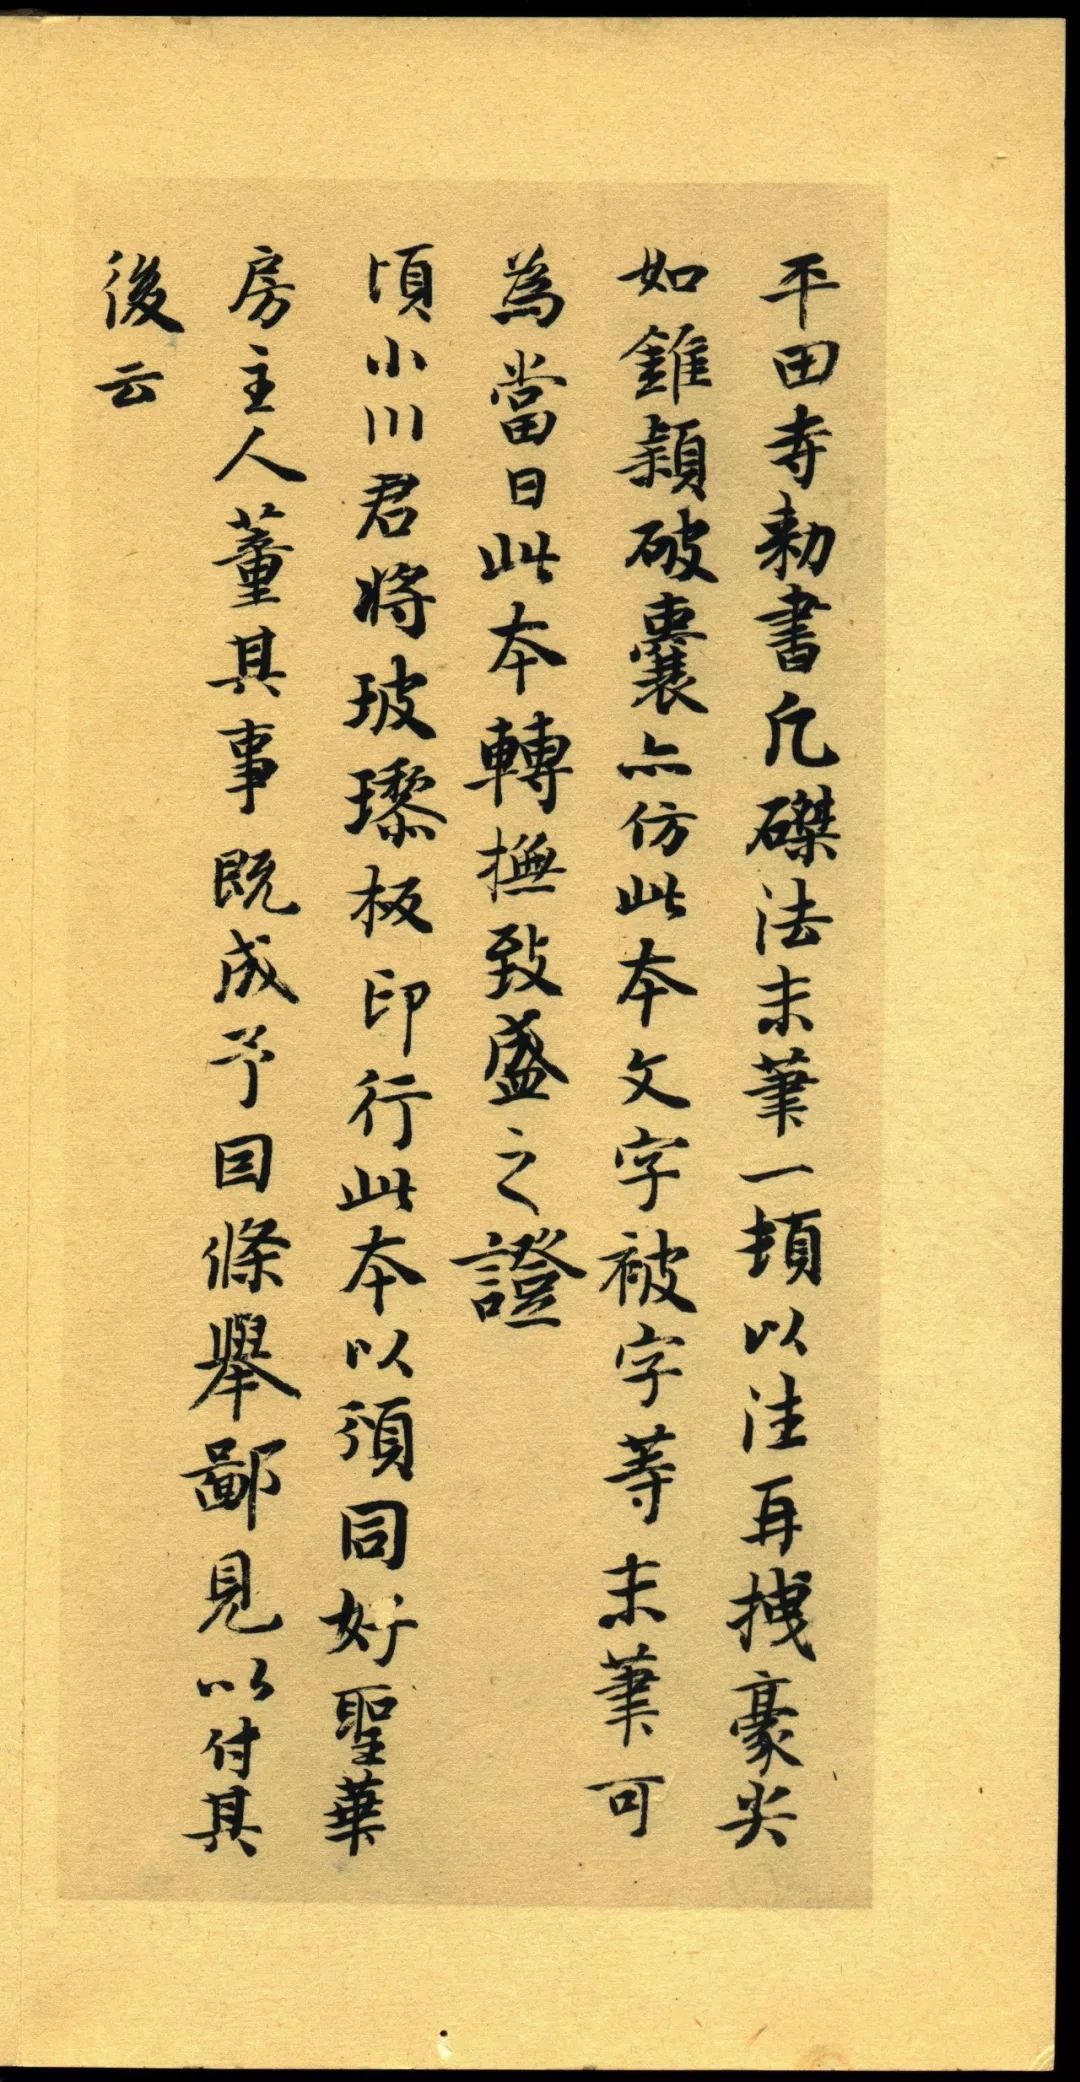 平田寺勅書凡磔法末筆一頓以注再拽豪尖
如錐穎破囊亦仿此本文字被字等末筆可
為當日此本轉撫致盛之證
頃小川君將玻瓈板印行此本以頒同好聖華
房主人董其事既成予因條舉鄙見以付其
後云